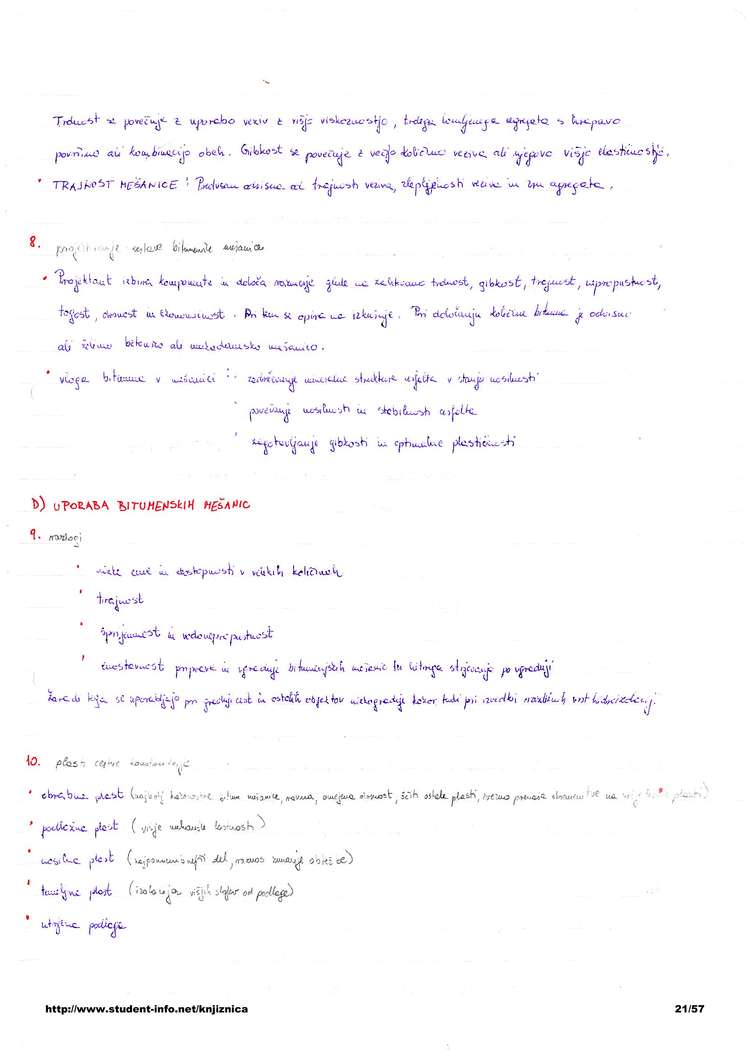 Trdnost se povečuje z uporabo veziv z višjo viskoznostjo, trdega lomljenega agregata s hrapavo
površino ali kombinacijo obeh. Gibkost se povečuje z večjo količino veziva ali njegovo višjo elastičnostjo.
• TRAJNOST MEŠANICE : Predvsem odvisna od trajnosti veziva, zlepljenosti veziva in zrn agregata.
8. projektiranje sestave bitumenske mešanice
• Projektant izbira komponente in določa razmerje glede na zahtevano trdnost, gibkost, trajnost, neprepustnost,
togost, drsnost in ekonomičnost. Pri tem se opira na izkušnje. Pri določanju količine bitumna je odvisno
ali želimo betonsko ali makadamsko mešanico.
• vloga bitumna v mešanici : • zadrževanje mineralne strukture asfalta v stanju nosilnosti
• povečanje nosilnosti in stabilnosti asfalta
• zagotavljanje gibkosti in optimalne plastičnosti
D) UPORABA BITUMENSKIH MEŠANIC
9. razlogi
• nizke cene in dostopnosti v velikih količinah
• trajnost
• sprijemnost in vodoneprepustnost
• enostavnost priprave in vgradnje bitumenskih mešanic ter hitrega strjevanja po vgradnji
Zaradi tega se uporabljajo pri gradnji cest in ostalih objektov nizkogradnje kakor tudi pri izvedbi različnih vrst hidroizolacij.
10. plasti cestne konstrukcije
• obrabna plast (najbolj kakovostne bitum mešanice, ravna, omejena drsnost, ščiti ostale plasti, prenaša obremenitve na plasti)
• podložna plast (višje mehanske lastnosti)
• nosilna plast (najpomembnejši del, obtežbe)
• temeljna plast (izolacija višjih slojev od podlage)
• utrjena podlaga
http://www.student-info.net/knjiznica
21/57